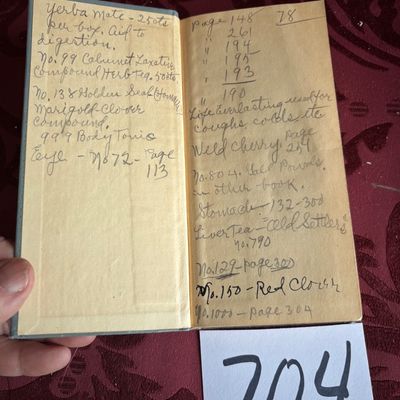 Yerba Mate - 25cts
per box. Aid to
digestion.
No. 99 Cabinet Laxative
Compound Herb Tea. 50cts
No. 138 Golden Seal
Marigold Clover
Compound.
999 Body Tonic
Eye - No 72 - Page
113
Page 148 78
" 261
" 194
" 195
" 193
" 190
Life Everlasting used for
coughs, colds, etc
Wild Cherry Page
No. 804.
in other book.
Stomach - 132-300
Liver Tea - Old Settlers
No. 790
No. 129 - page 300
No. 150 - Red Clover
No. 1000 - page 304
704